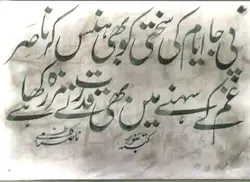 پی جا ایام کی سختی کو بھی ہنس کر ناصر
غم کے سہنے میں بھی قدرت نے مزہ رکھا ہے
ناصر کاظمی